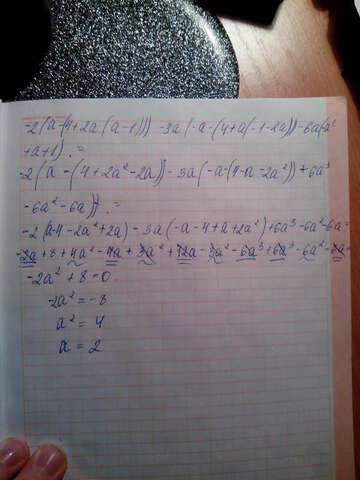 -2(a-(4+2a(a-1))) -3a(-a-(4+a(-1-2a))-6a(a²
+a+1). =
-2(a-(4+2a²-2a)) -3a(-a-(4-a-2a²))+6a³
-6a²-6a)). =
-2(a-4-2a²+2a)-3a(-a-4+a+2a²)+6a³-6a²-6a=
-2a+8+4a²-4a+3a²+12a-3a²-6a³+6a³-6a²-6a=
-2a²+8=0.
-2a²=-8
a²=4
a=2